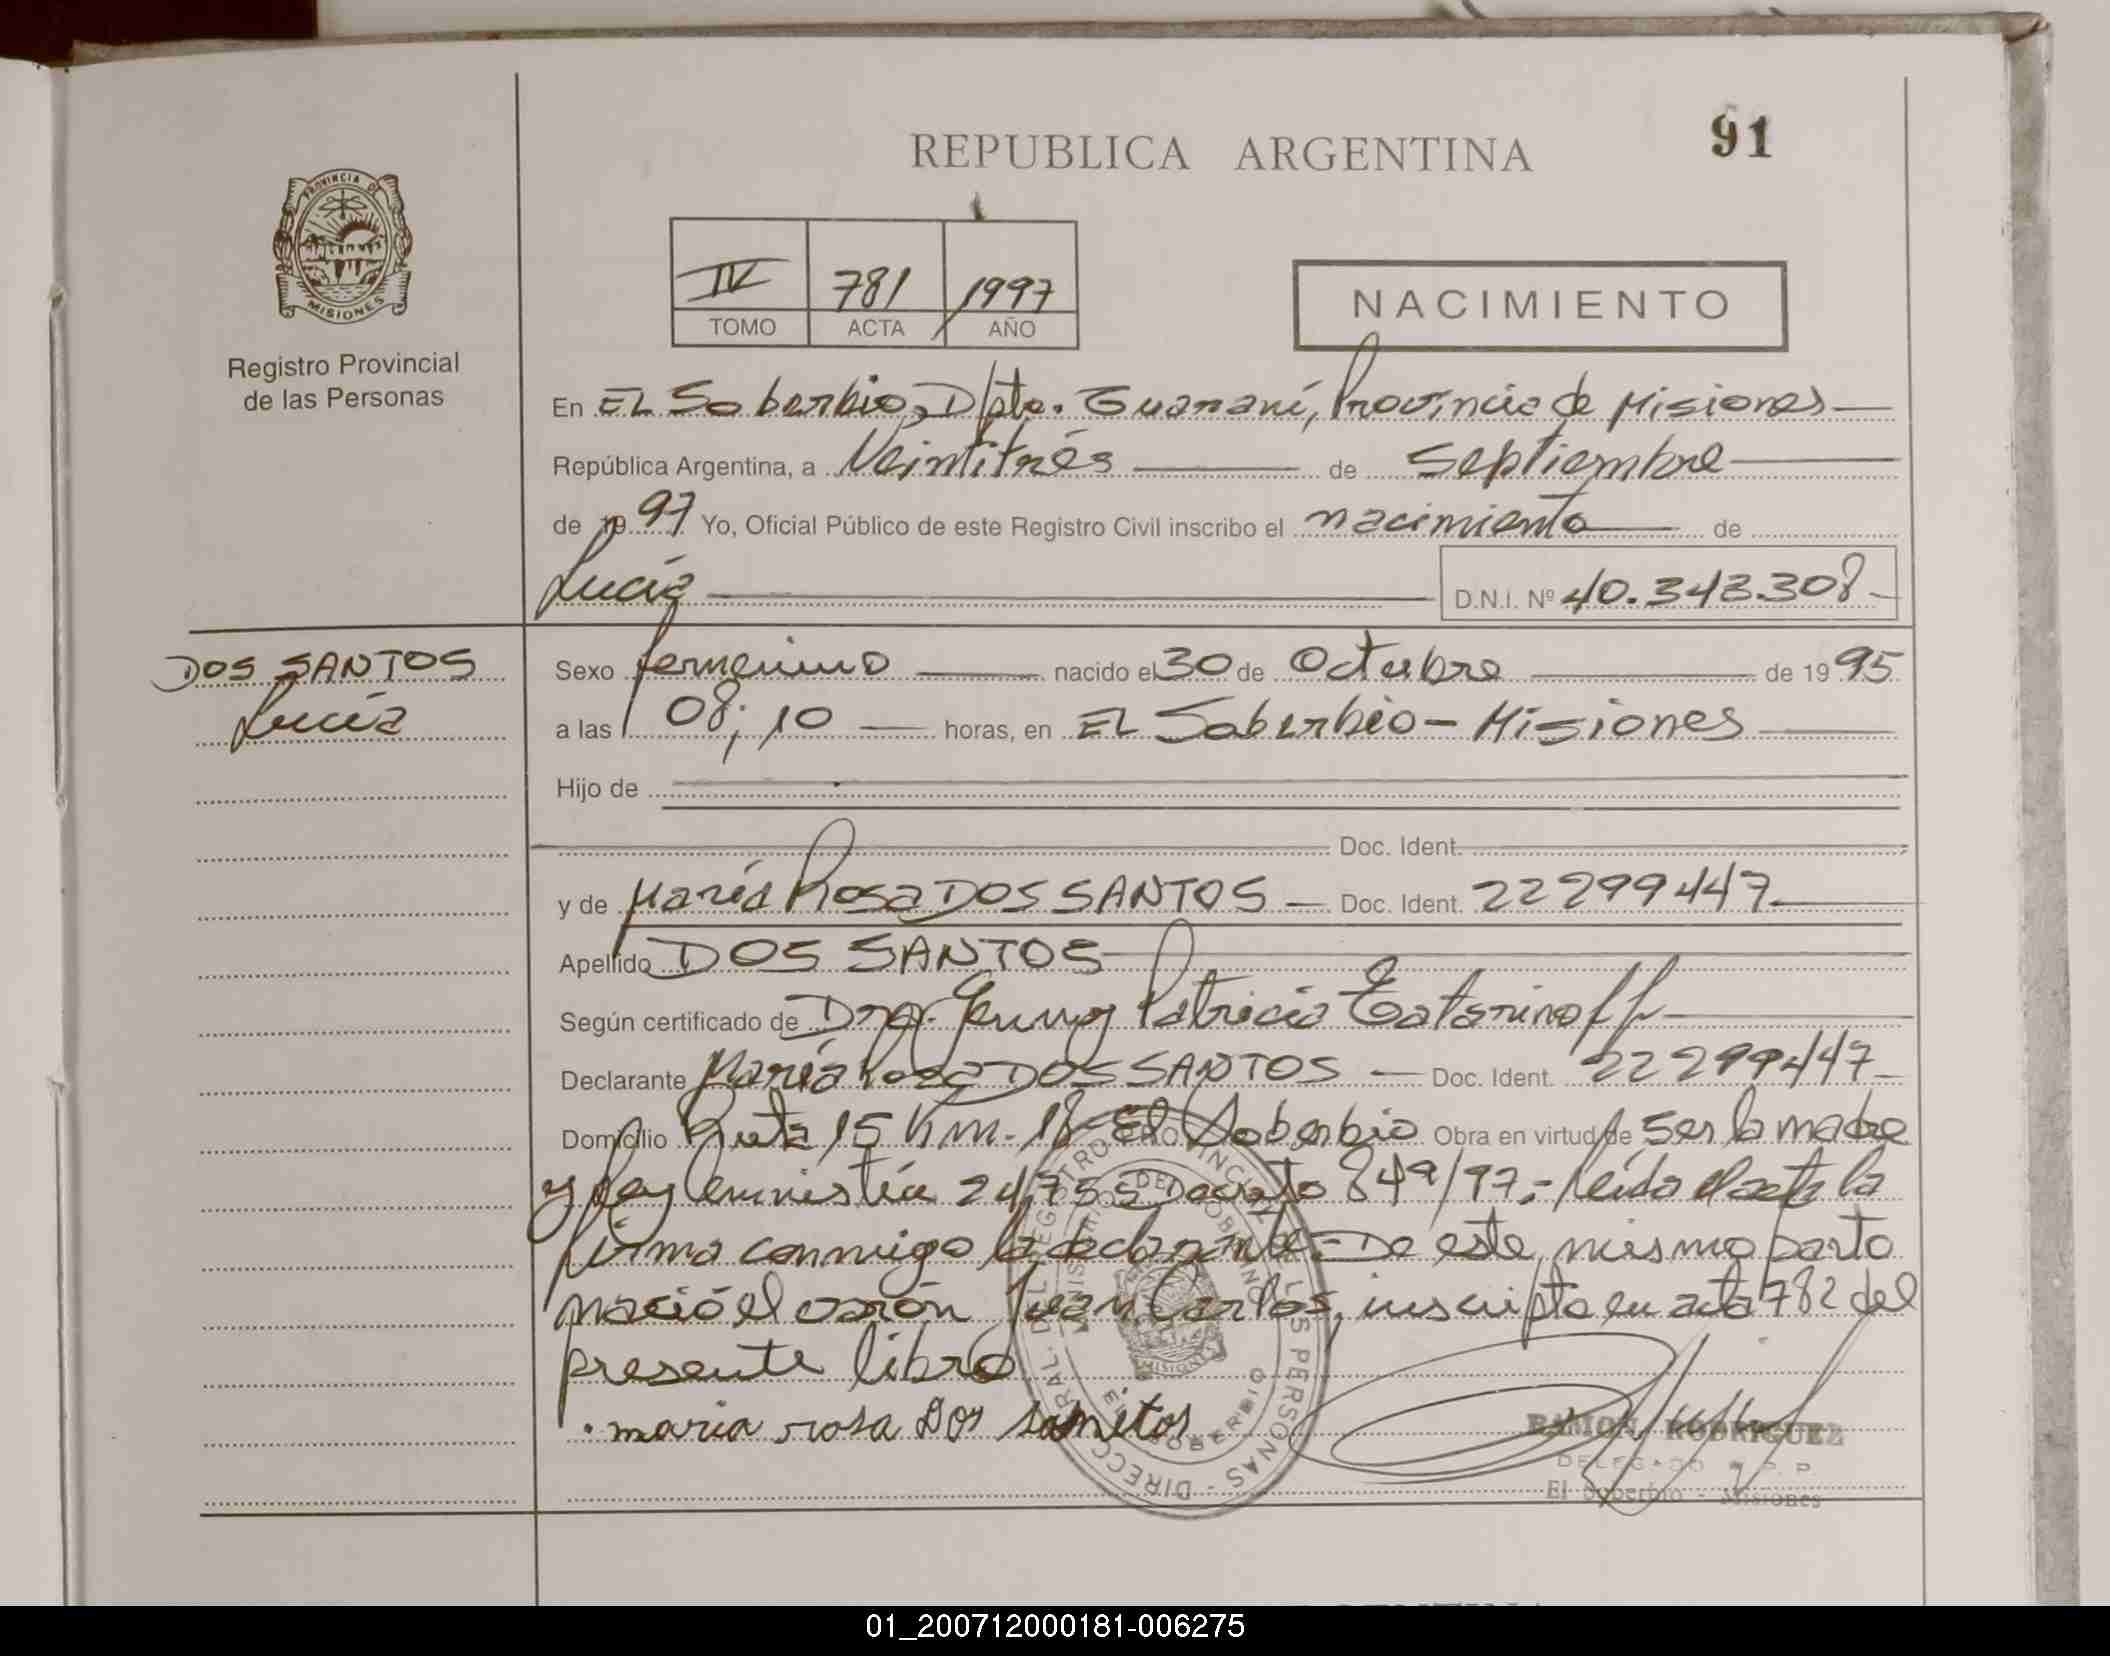 91
REPUBLICA ARGENTINA
PROVINCIA DE
MISIONES
Registro Provincial
de las Personas
IV 781 1997
TOMO ACTA AÑO
NACIMIENTO
En EL Soberbio, Dpto. Guaraní, Provincia de Misiones
República Argentina, a Veintitrés de Septiembre
de 1997 Yo, Oficial Público de este Registro Civil inscribo el nacimiento de
Lucía D.N.I. Nº 40.343.308
DOS SANTOS
Lucía
Sexo femenino nacido el 30 de Octubre de 1995
a las 08;10 horas, en EL Soberbio - Misiones
Hijo de
Doc. Ident.
y de María Rosa DOS SANTOS Doc. Ident. 22299447
Apellido DOS SANTOS
Según certificado de Dra. Jenny Patricia Tatarinoff
Declarante María Rosa DOS SANTOS Doc. Ident. 22299447
Domicilio Ruta 15 Km. 18 El Soberbio Obra en virtud de ser la madre
y Ley Amnistía 24,755 Decreto 849/97.- Leída el acta la
firma conmigo la declarante.- De este mismo parto
nació el varón Juan Carlos, inscripto en acta 782 del
presente libro
maria rosa Dos santos
RAMON RODRIGUEZ
DELEGADO R. P. P.
El Soberbio - Misiones
01_200712000181-006275